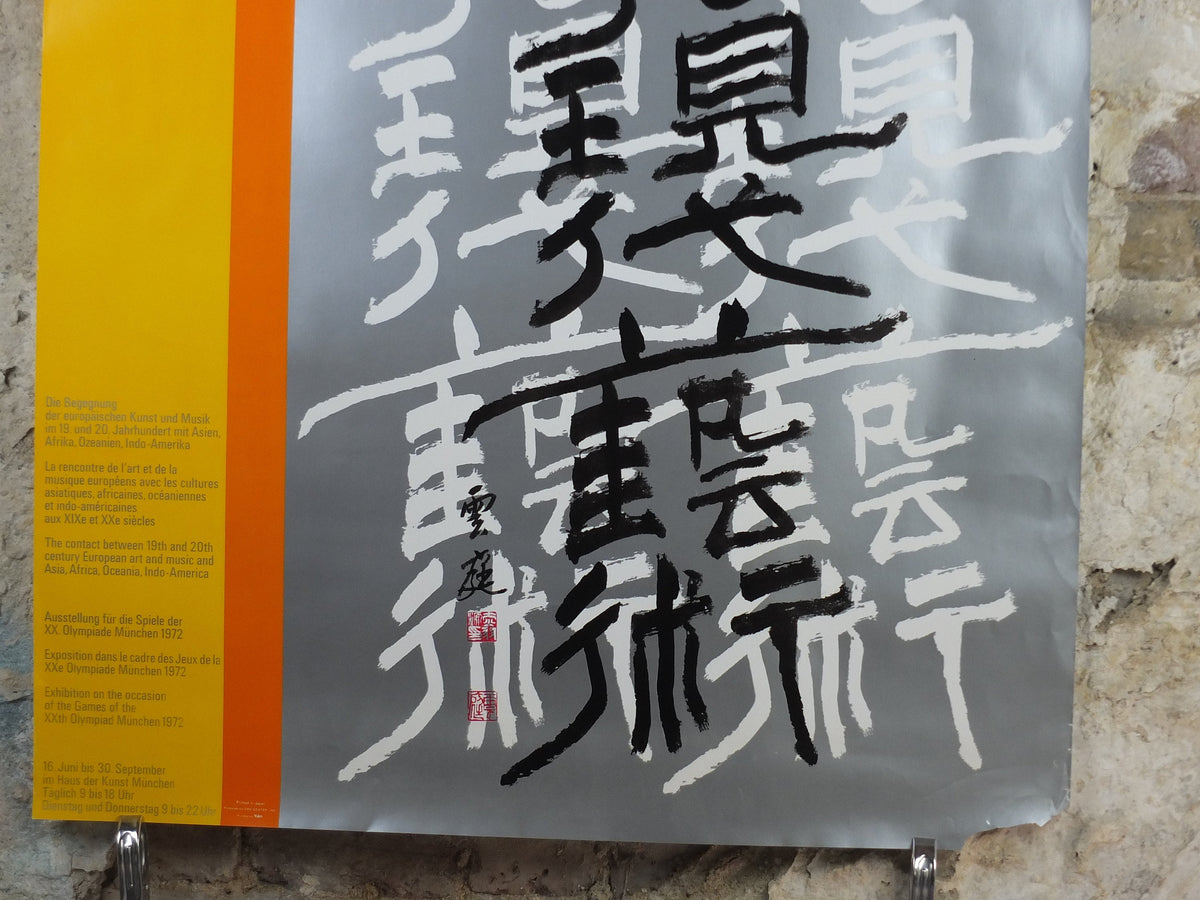 Die Begegnung
der europäischen Kunst und Musik
im 19. und 20. Jahrhundert mit Asien,
Afrika, Ozeanien, Indo-Amerika
La rencontre de l'art et de la
musique européens avec les cultures
asiatiques, africaines, océaniennes
et indo-américaines
aux XIXe et XXe siècles
The contact between 19th and 20th
century European art and music and
Asia, Africa, Oceania, Indo-America
Ausstellung für die Spiele der
XX. Olympiade München 1972
Exposition dans le cadre des Jeux de la
XXe Olympiade München 1972
Exhibition on the occasion
of the Games of the
XXth Olympiad München 1972
16. Juni bis 30. September
im Haus der Kunst München
Täglich 9 bis 18 Uhr
Dienstag und Donnerstag 9 bis 22 Uhr
藝術
雲庭